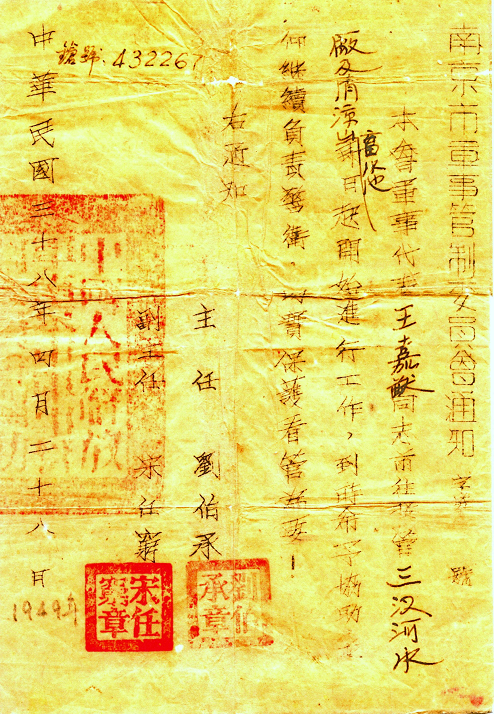 南京市軍事管制委員會通知 號
本會軍事代表王嘉猷同志前往接管三汊河水
廠及清涼山蓄池日起開始進行工作，到時希予協助
仰繼續負責警衛，切實保護看管為要！
右通知
主任 劉伯承
副主任 宋任窮
中華民國三十八年四月二十八日
鎗號.432267
1949年
劉伯承章
宋任窮章
中國人民解放